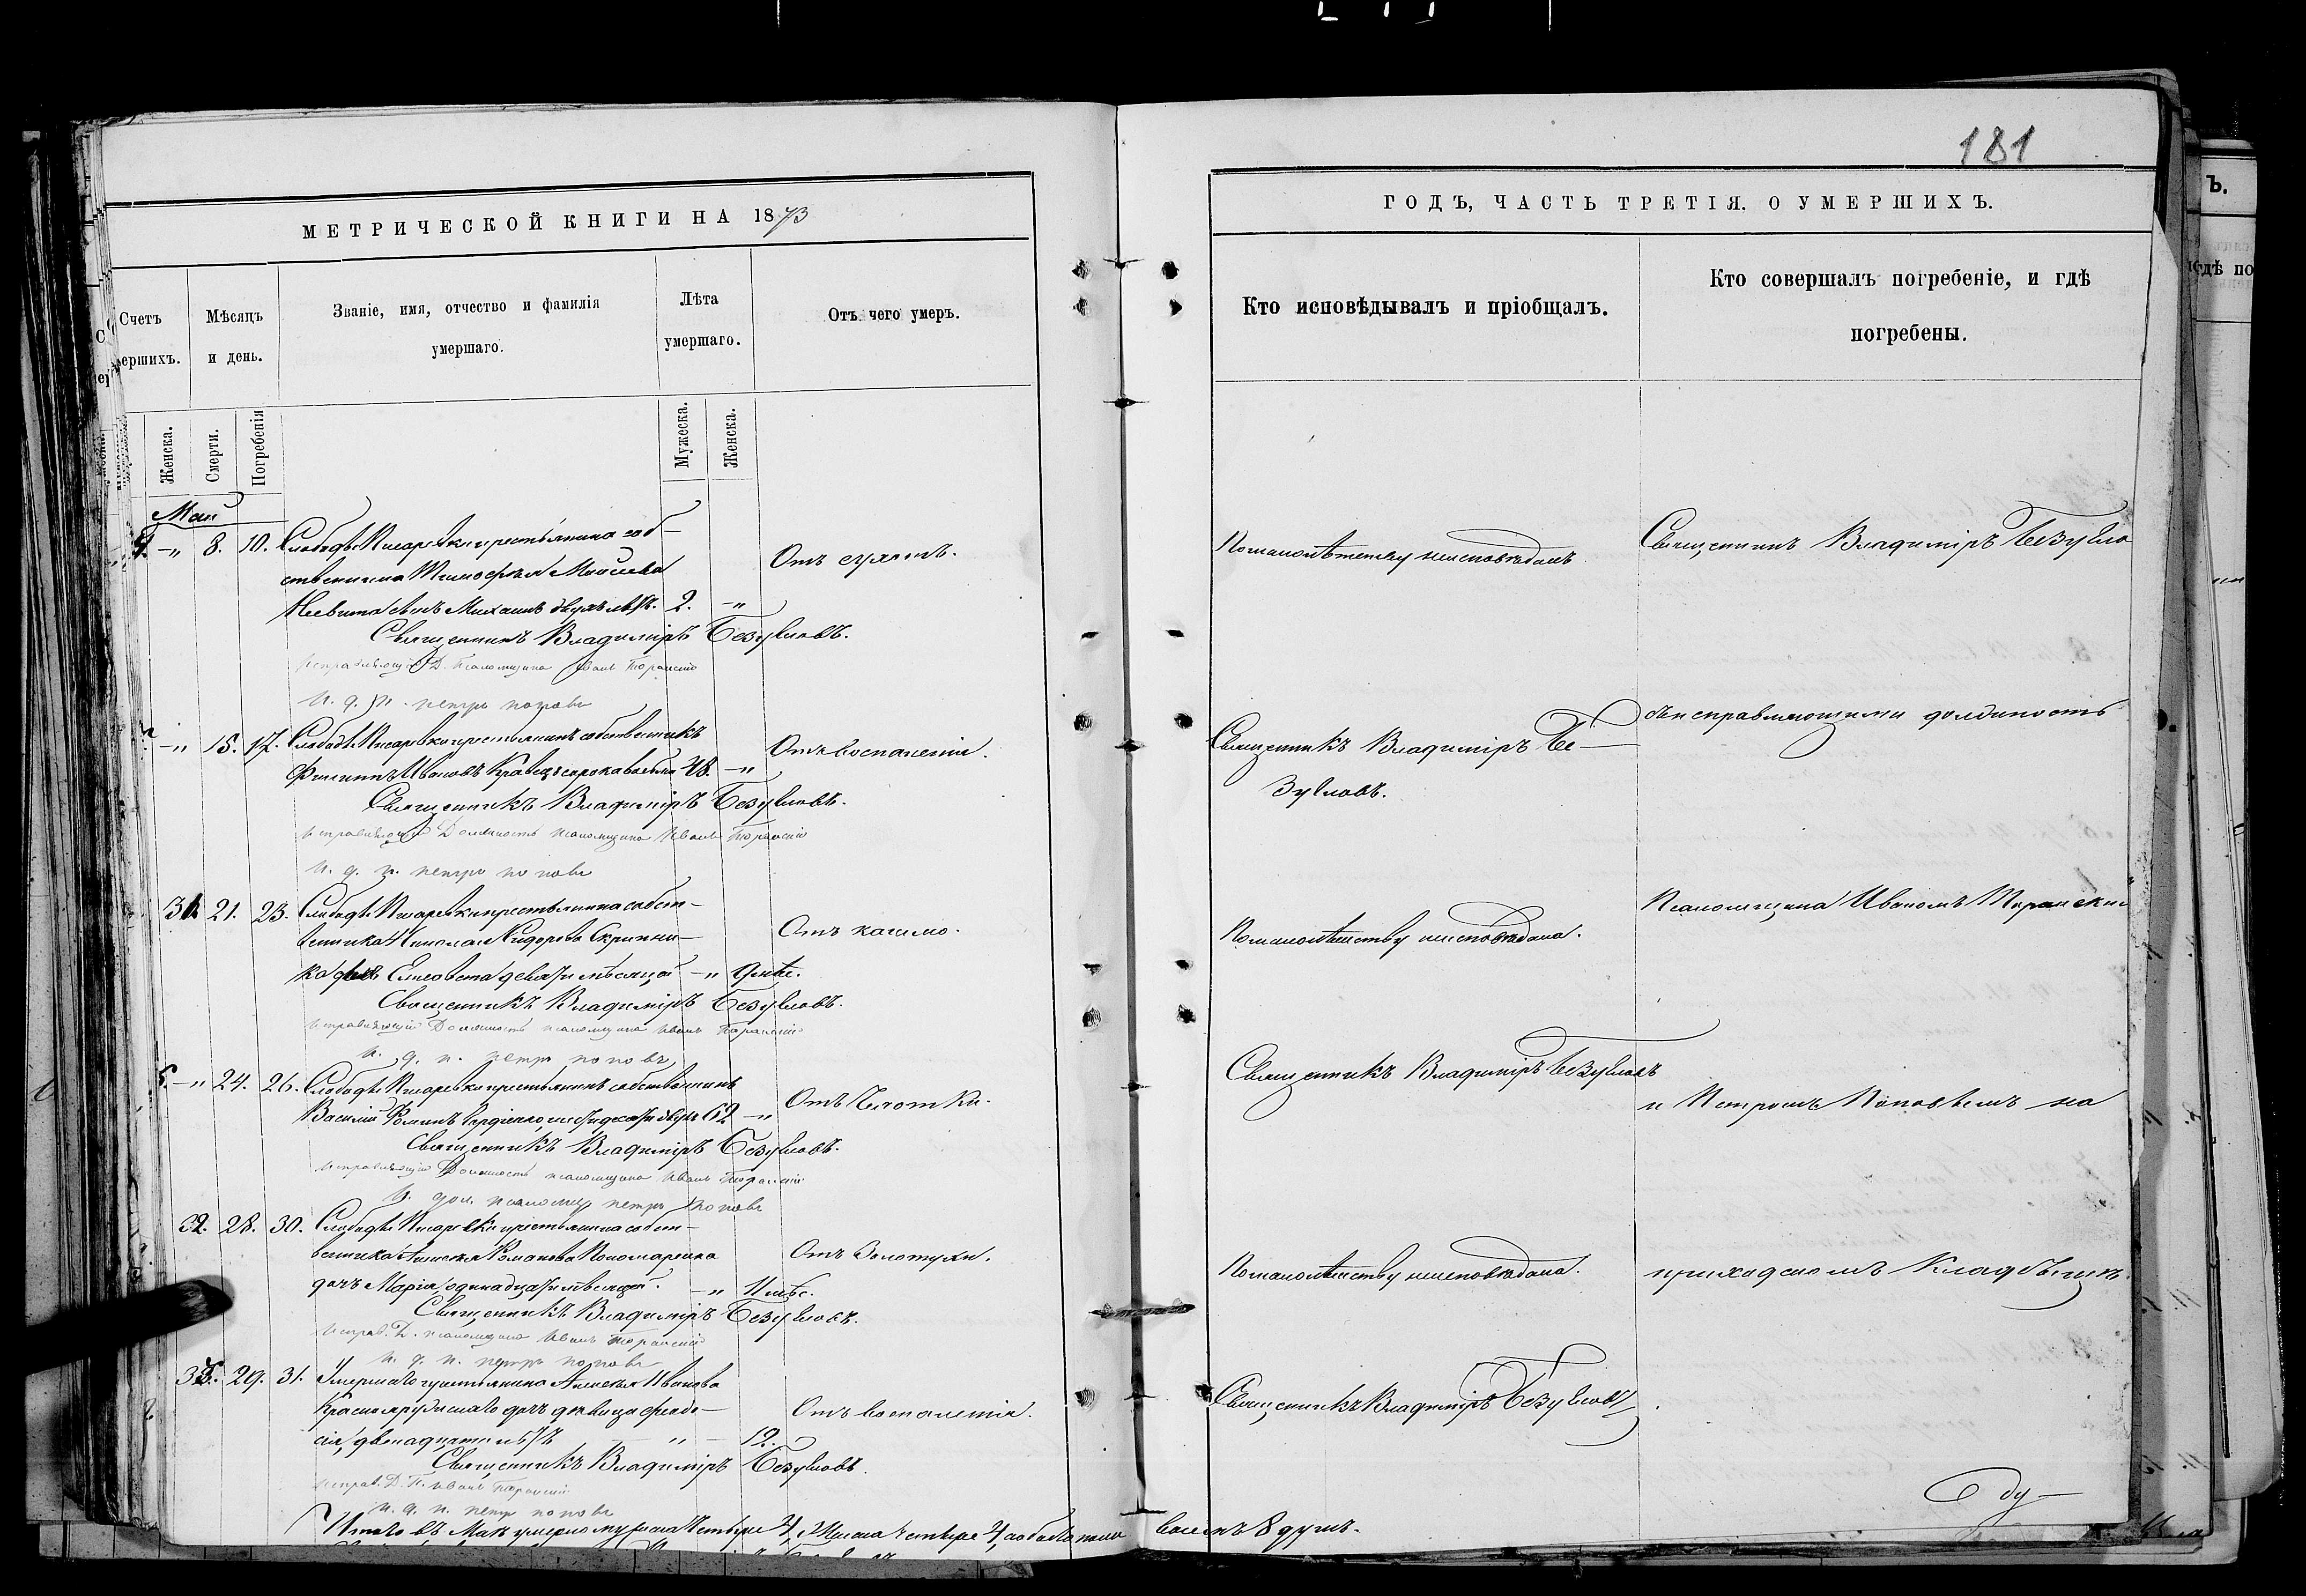 181
МЕТРИЧЕСКОЙ КНИГИ НА 1873
Счетъ
ершихъ.
Мѣсяцъ
и день.
Званіе, имя, отчество и фамилія
умершаго.
Лѣта
умершаго.
Отъ чего умеръ.
Женска.
Смерти.
Погребенія
Мужеска.
Женска.
Май
4. -„ 8. 10. Слободы Писаревки крестьянина соб-
ственника Тимофея Моисеева
сынъ Михаилъ двухъ лѣтъ. 2. -„
Священникъ Владиміръ Безугловъ.
Исправляющій Д. Псаломщика Иванъ
И. д. п. петръ поповъ
-„ 15. 17. Слободы Писаревки крестьянинъ собственникъ
Филиппъ Ивановъ Кравецъ сорока восьми 48. -„
Отъ воспаленія.
Священникъ Владиміръ Безугловъ.
Исправляющій Должность псаломщика Иванъ
И. д. п. петръ поповъ
31. 21. 23. Слободы Писаревки крестьянина собст-
венника Николая Сидорова Скрипни-
ка дочь Елисавета девяти мѣсяцей -„ 9 мѣс.
Отъ кашлю.
Священникъ Владиміръ Безугловъ.
Исправляющій Должность псаломщика Иванъ
И. д. п. петръ поповъ
5. -„ 24. 26. Слободы Писаревки крестьянинъ собственникъ
Василій Фоминъ Гордіенко, шестидесяти двухъ 62 -„
Отъ Чахотки.
Священникъ Владиміръ Безугловъ.
Исправляющій Должность псаломщика Иванъ
И. дол. псаломщ петръ поповъ
32. 28. 30. Слободы Писаревки крестьянина собст-
венника Романова Пономаренка
дочь Марія, одинадцати мѣсяцей. -„ 11 мѣс.
Отъ Золотухи.
Священникъ Владиміръ Безугловъ.
Исправ. Д. псаломщика Иванъ
И. д. п. петръ поповъ
33. 29. 31. Умершаго крестьянина Алексея Иванова
дочь девица Феодо-
сія, двенадцати лѣтъ „ - 12.
Отъ воспаленія.
Священникъ Владиміръ Безугловъ.
Исправ. Д. П. Иванъ
И. д. п. петръ поповъ
Итого въ Маѣ умерло мужеска четыре 4, Женска четыре 4, а обоего пола восемь 8 душъ.
ГОДЪ, ЧАСТЬ ТРЕТІЯ. О УМЕРШИХЪ.
Кто исповѣдывалъ и пріобщалъ.
Кто совершалъ погребеніе, и гдѣ
погребены.
По малолѣтству неисповѣданъ
Священникъ Владиміръ Бе-
зугловъ.
По малолѣтству неисповѣдана.
Священникъ Владиміръ Безугловъ
По малолѣтству неисповѣдана.
Священникъ Владиміръ Безугловъ
Священникъ Владиміръ Безугло
съ исправляющими должность
Псаломщика Иваномъ
и Петромъ Поповымъ на
приходскомъ Кладбищѣ.